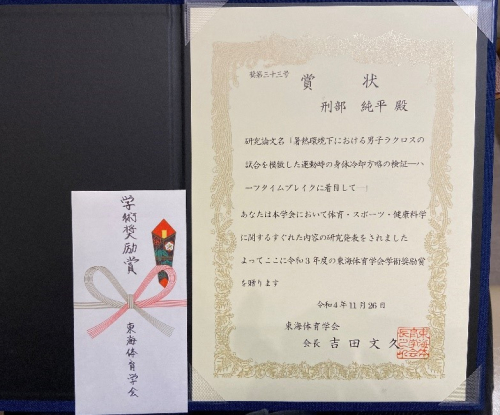 奨第三十三号
賞状
刑部 純平 殿
研究論文名「暑熱環境下における男子ラクロスの
試合を模倣した運動時の身体冷却方略の検証―ハ
ーフタイムブレイクに着目して―」
あなたは本学会において体育・スポーツ・健康科学
に関するすぐれた内容の研究発表をされました
よってここに令和3年度の東海体育学会学術奨励賞
を贈ります
令和4年11月26日
東海体育学会
会長 吉田文久
学術奨励賞
東海体育学会